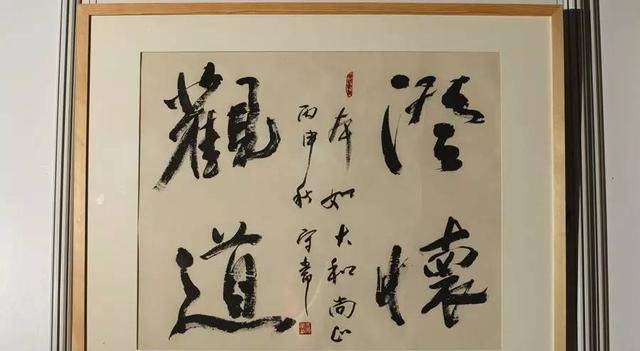 澄懷
觀道
本如大和尚正
丙申秋守常